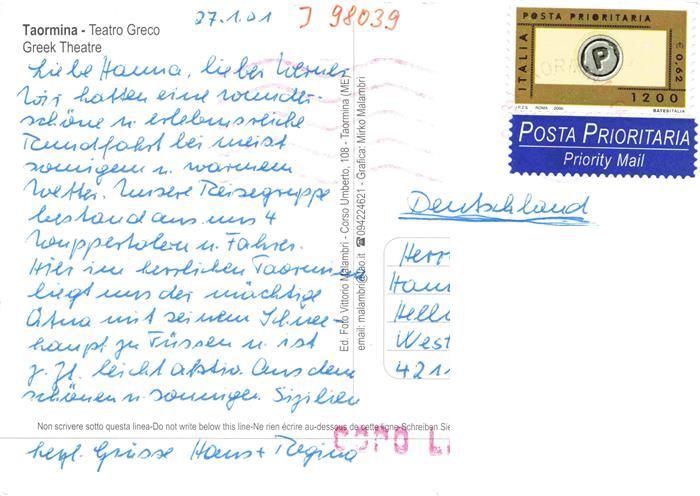 Taormina - Teatro Greco
Greek Theatre
27.1.01
J 98039
Liebe Hanna, lieber Werner
Wir hatten eine wunder-
schöne u. erlebnisreiche
Rundfahrt bei meist
sonnigem u. warmem
Wetter. Unsere Reisegruppe
bestand aus uns 4
Wuppertalern u. Fahrer.
Hier im herrlichen Taormina
liegt uns der mächtige
Ätna mit seinem Schnee-
haupt zu Füssen u. ist
z. Zt. leicht aktiv. Aus dem
schönen u. sonnigen Sizilien
Non scrivere sotto questa linea-Do not write below this line-Ne rien écrire au-dessous de cette ligne-Schreiben Sie
herzl. Grüsse Hans + Regina
Ed. Foto Vittorio Malambri - Corso Umberto, 108 - Taormina (ME)
email: malambri@tao.it ☎094224621 - Grafica: Mirko Malambri
POSTA PRIORITARIA
ITALIA
P
€ 0,62
1200
I.P.Z.S. ROMA 2000
BATESITALIA
POSTA PRIORITARIA
Priority Mail
Deutschland
Herrn
Hellm
West
421